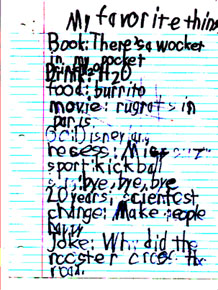 My favorite thin
Book: There's a wocket
in my pocket
Drink: H2O
food: burrito
movie: rugrats in
paris
Disney
recess:
sport: kickball
bye, bye, bye
20 years: scientest
change: Make people
happy
Joke: Why did the
rooster cross the
road.